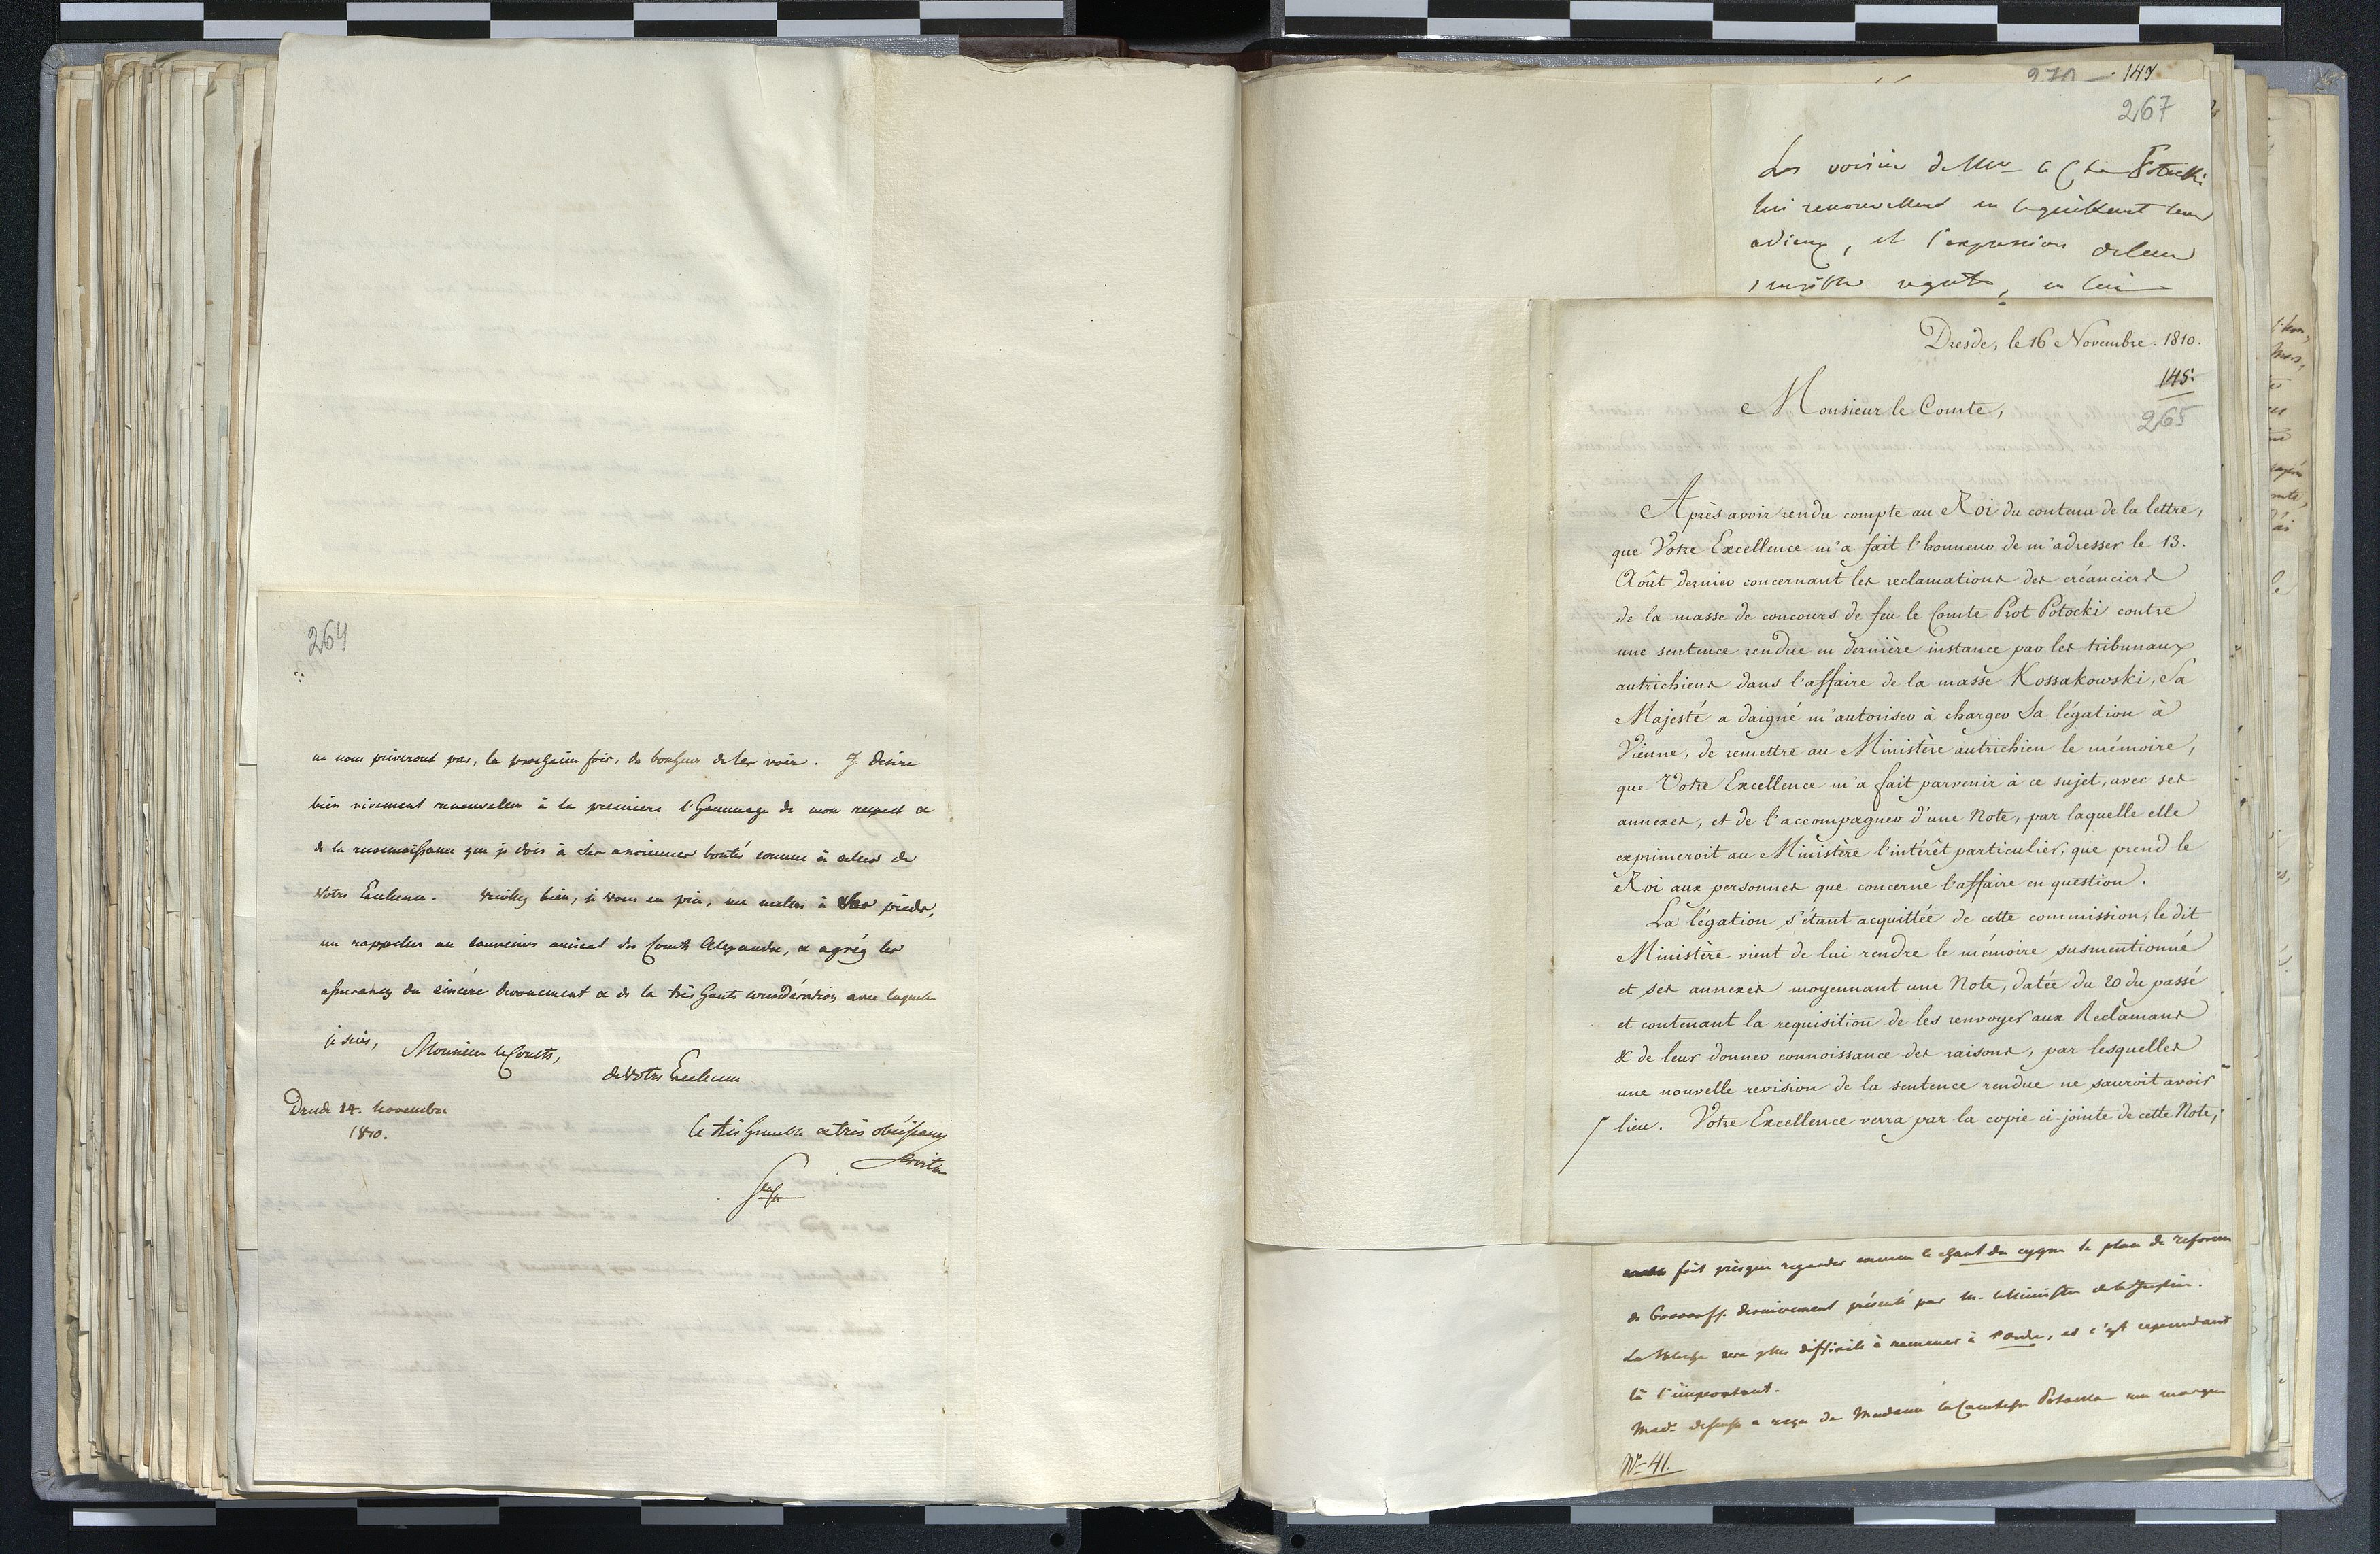 264
ne nous priveront pas, la prochaine fois, du bonheur de les voir. Je desire
bien vivement renouveller à la premiere l'hommage de mon respect &
de la reconnaissance que je dois à Ses anciennes bontés comme à celles de
Votre Excellence. Veuillez bien, je vous en prie, me mettre à Ses pieds,
me rappeller au souvenir amical du Comte Alexandre, & agréez les
assurances du sincère dévouement & de la très haute considération avec laquelle
je suis,
Monsieur le Comte,
de Votre Excellence
Dresde 14. novembre
1810.
le très humble & très obéissant
Serviteur
147
267
lui renouvellent en le quittant leurs
adieux, et l'expression de leurs
regrets, en lui
Dresde, le 16 Novembre. 1810.
145.
265
Monsieur le Comte,
Après avoir rendu compte au Roi du contenu de la lettre,
que Votre Excellence m'a fait l'honneur de m'adresser le 13.
Août dernier concernant les reclamations des créanciers
de la masse de concours de feu le Comte Prot Potocki contre
une sentence rendue en dernière instance par les tribunaux
autrichiens dans l'affaire de la masse Kossakowski, Sa
Majesté a daigné m'autoriser à charger Sa légation à
Vienne, de remettre au Ministère autrichien le mémoire,
que Votre Excellence m'a fait parvenir à ce sujet, avec ses
annexes, et de l'accompagner d'une Note, par laquelle elle
exprimeroit au Ministère l'intérêt particulier, que prend le
Roi aux personnes que concerne l'affaire en question.
La légation s'étant acquittée de cette commission, le dit
Ministère vient de lui rendre le mémoire susmentionné
et ses annexes moyennant une Note, datée du 20 du passé
et contenant la requisition de les renvoyer aux Reclamans
& de leur donner connoissance des raisons, par lesquelles
une nouvelle revision de la sentence rendue ne sauroit avoir
lieu. Votre Excellence verra par la copie ci-jointe de cette Note,
fait presque regarder comme le chant du cygne le plan de reforme
dernierement présenté par M. le Ministre de la Justice.
sera plus difficile à ramener à l'ordre, et c'est cependant
là l'important.
a reçu de Madame la Comtesse Potocka une marque
No 41.